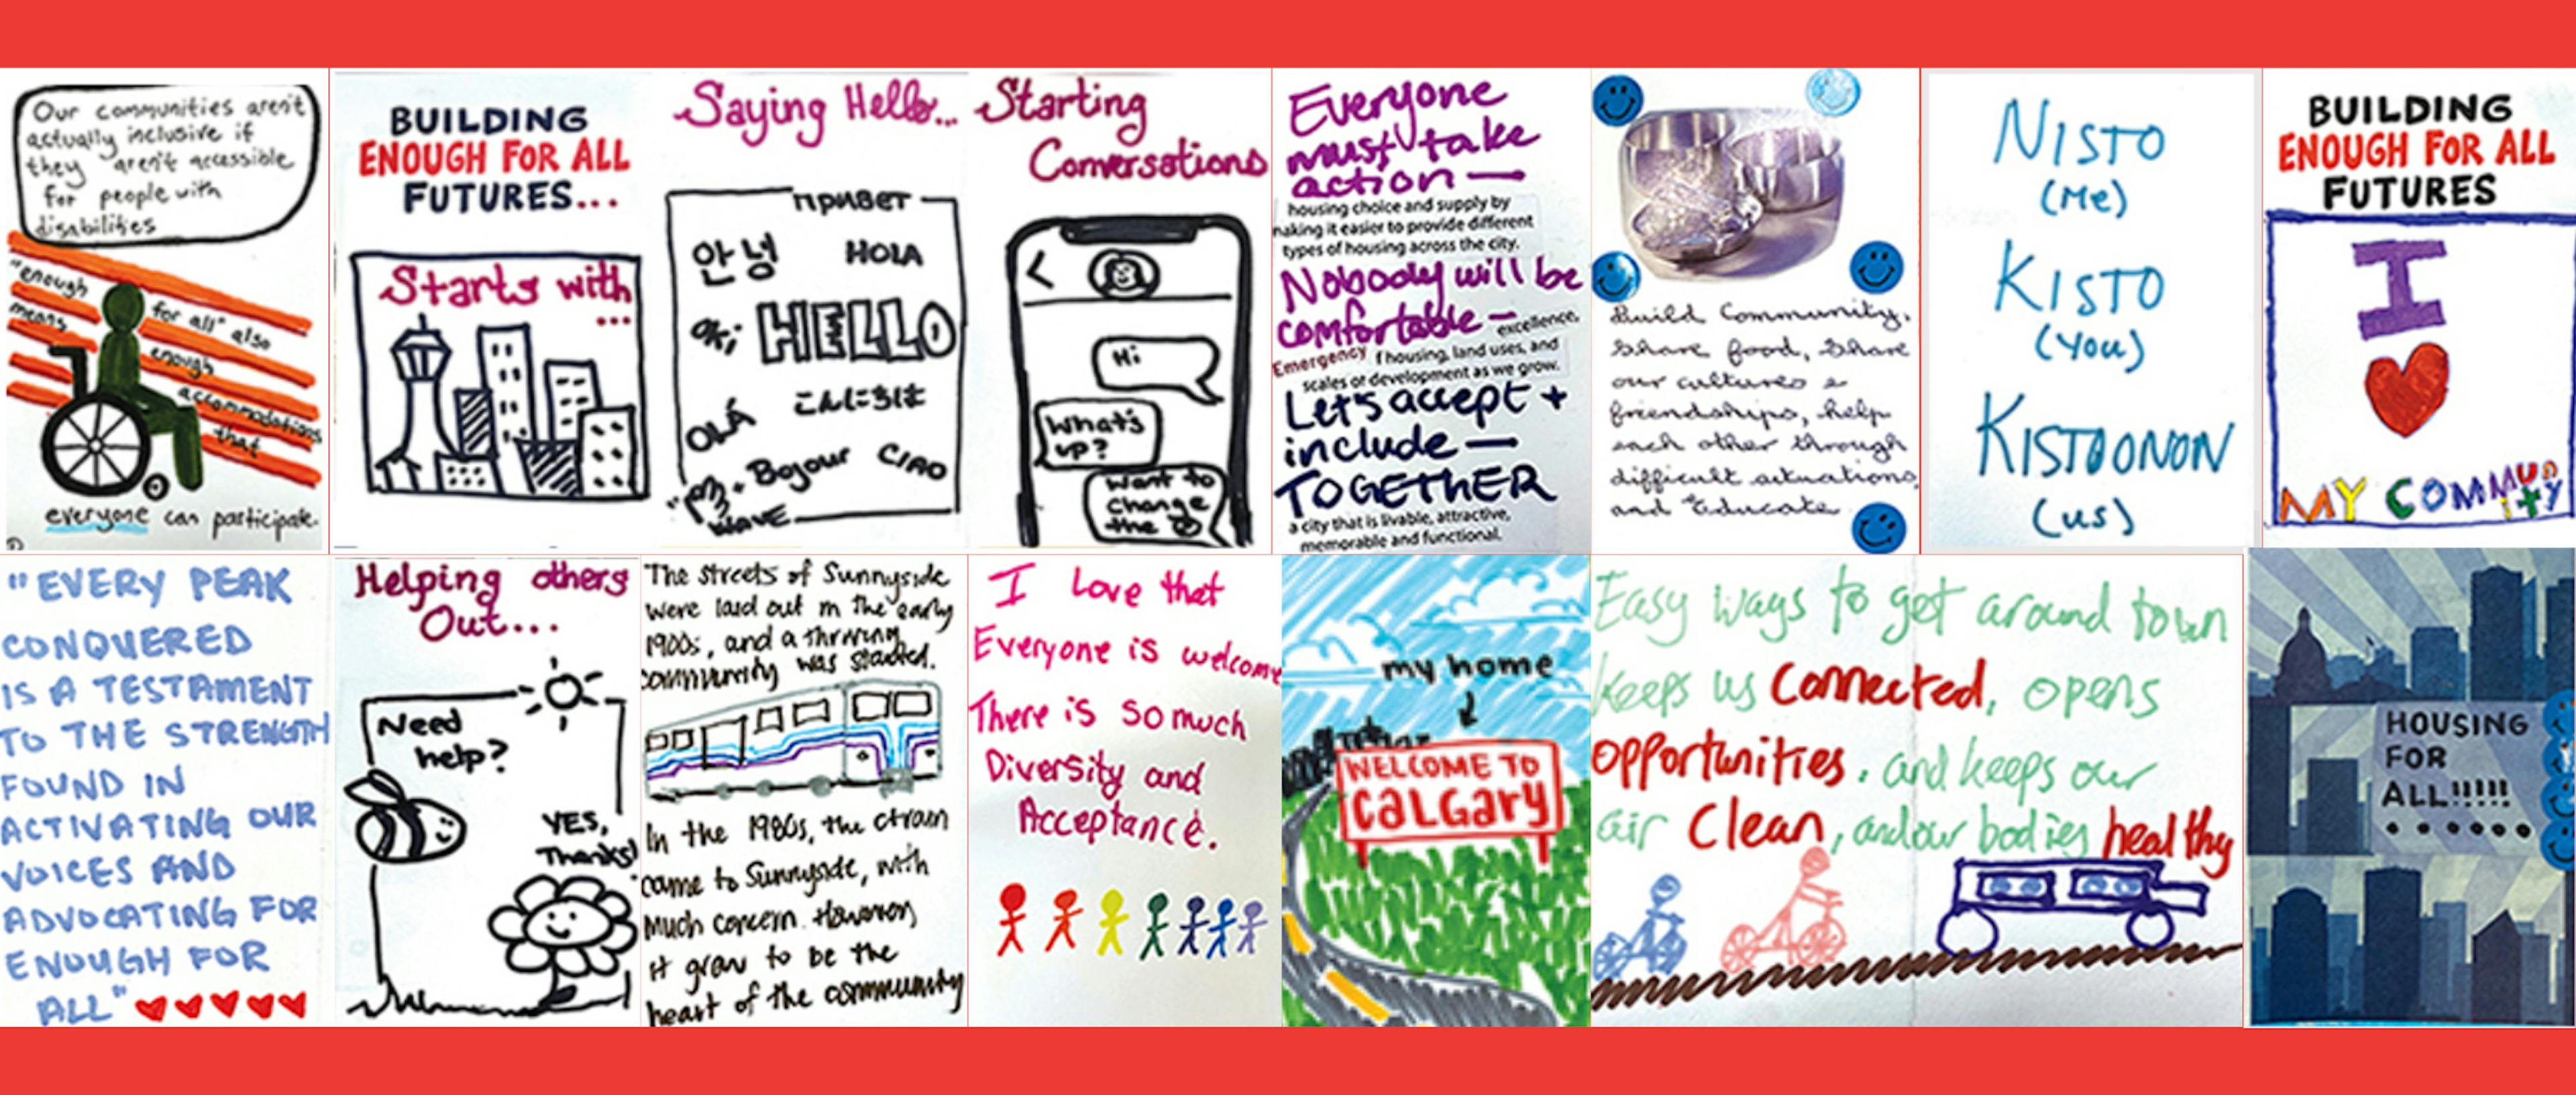 Our communities aren't
actually inclusive if
they aren't accessible
for people with
disabilities
"enough for all" also
means enough
accommodations
that
everyone can participate.
BUILDING
ENOUGH FOR ALL
FUTURES...
Starts with
...
Saying Hello...
привет
안녕
HOLA
Oki
HELLO
こんにちは
OLÁ
Bojour
CIAO
WAVE
Starting
Conversations
Hi
What's
up?
Want to
change
the
Everyone
must take
action —
housing choice and supply by
making it easier to provide different
types of housing across the city.
Nobody will be
comfortable —
excellence,
Emergency f housing, land uses, and
scales of development as we grow.
Let's accept +
include —
TOGETHER
a city that is livable, attractive,
memorable and functional.
Build Community,
Share food, Share
our cultures &
friendships, help
each other through
difficult situations,
and Educate
NISTO
(Me)
KISTO
(You)
KISTOONON
(us)
BUILDING
ENOUGH FOR ALL
FUTURES
I
MY COMMUNITY
"EVERY PEAK
CONQUERED
IS A TESTAMENT
TO THE STRENGTH
FOUND IN
ACTIVATING OUR
VOICES AND
ADVOCATING FOR
ENOUGH FOR
ALL"
Helping others
Out...
Need
help?
YES,
Thanks!
The streets of Sunnyside
were laid out in the early
1900s, and a thriving
community was started.
In the 1980s, the ctrain
came to Sunnyside, with
much concern. However,
it grew to be the
heart of the community
I Love that
Everyone is welcome
There is so much
Diversity and
Acceptance.
my home
WELCOME TO
CALGARY
Easy ways to get around town
keeps us connected, opens
opportunities, and keeps our
air Clean, and our bodies healthy
HOUSING
FOR
ALL!!!!!